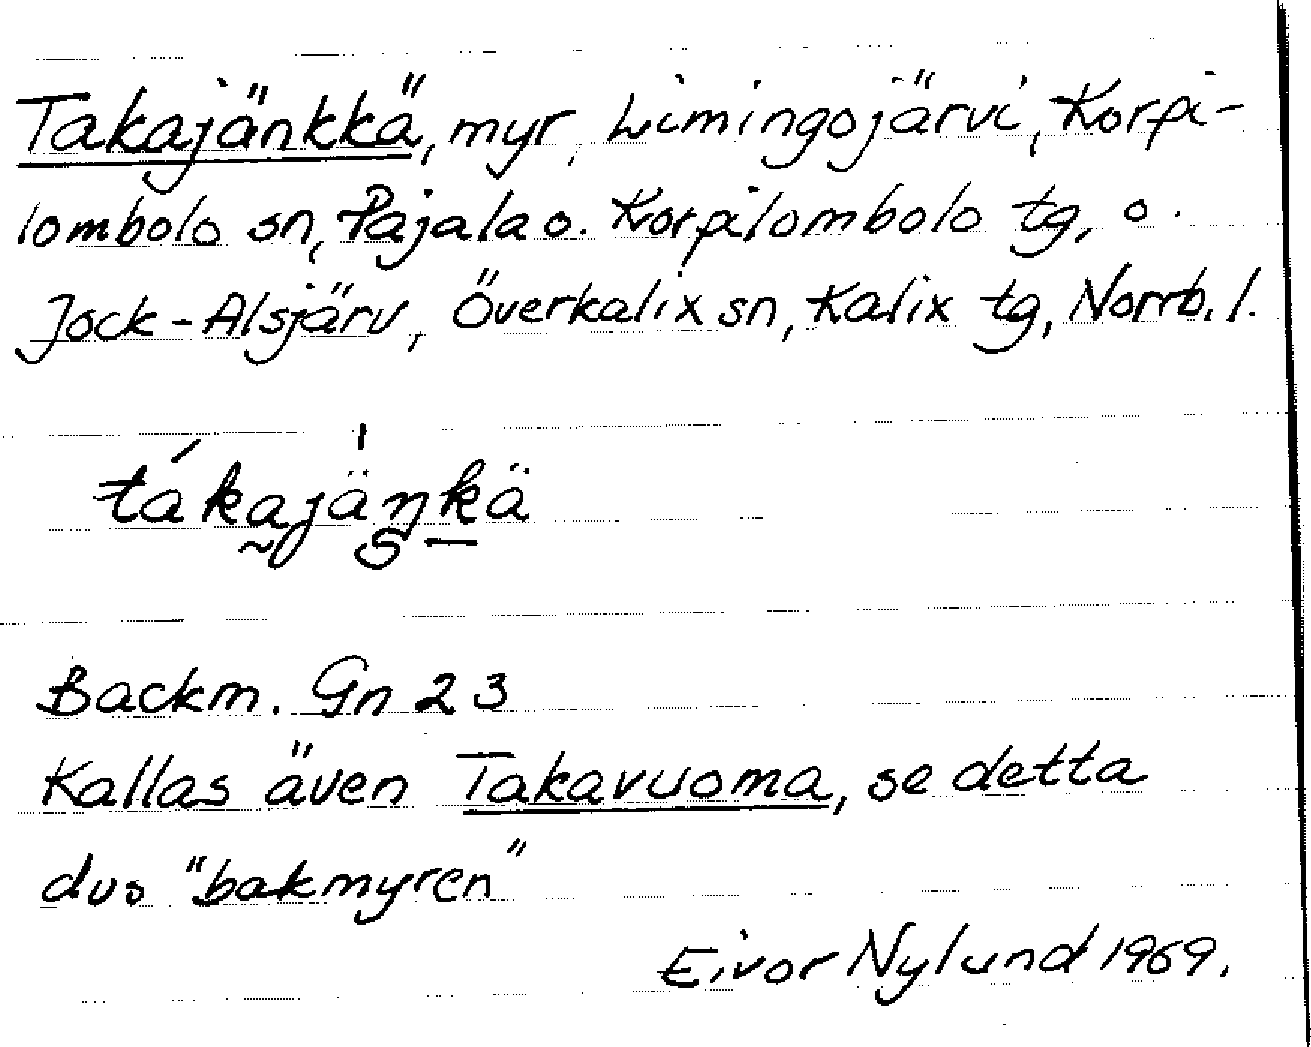 Takajänkkä, myr, Limingojärvi, Korpi-
lombolo sn, Pajala o. Korpilombolo tg, o.
Jock-Alsjärv, Överkalix sn, Kalix tg, Norrb. l.
tákajäŋkä
Backm. Gn 23
Kallas även Takavuoma, se detta
dvs "bakmyren"
Eivor Nylund 1969.